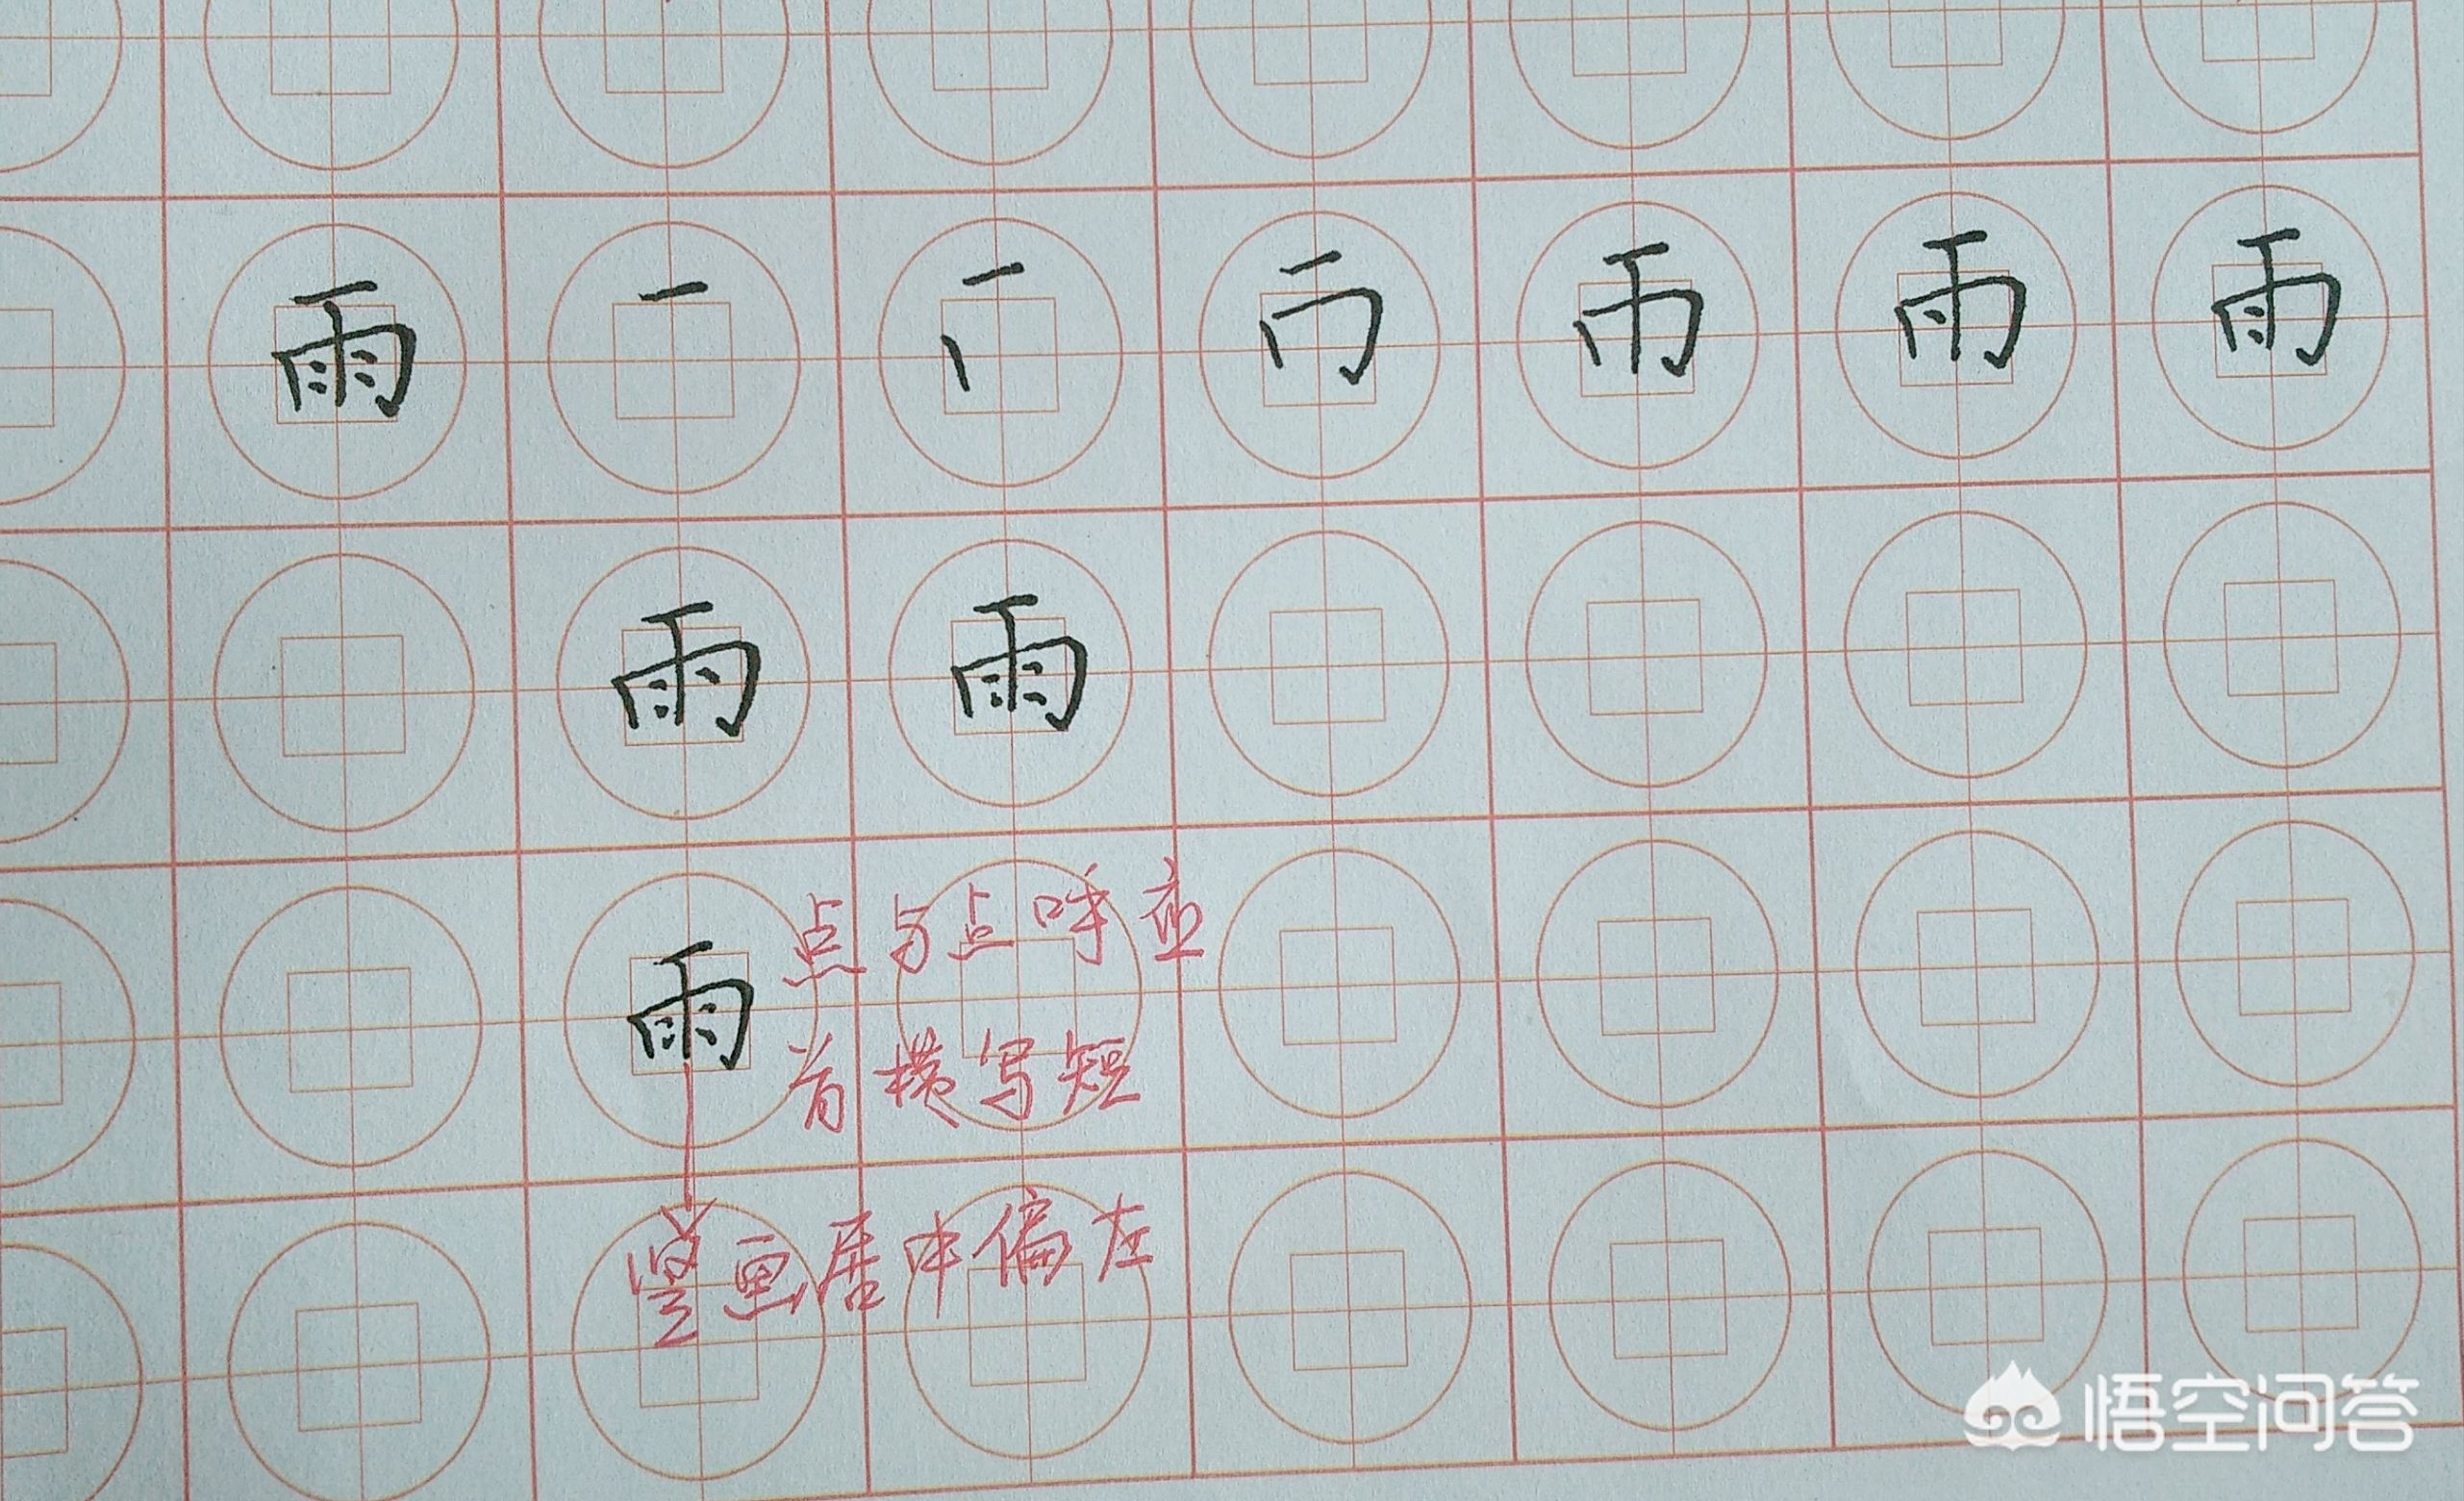 雨 一 雨 雨 雨
雨 雨
雨
点与点呼应
首横写短
竖画居中偏左
悟空问答